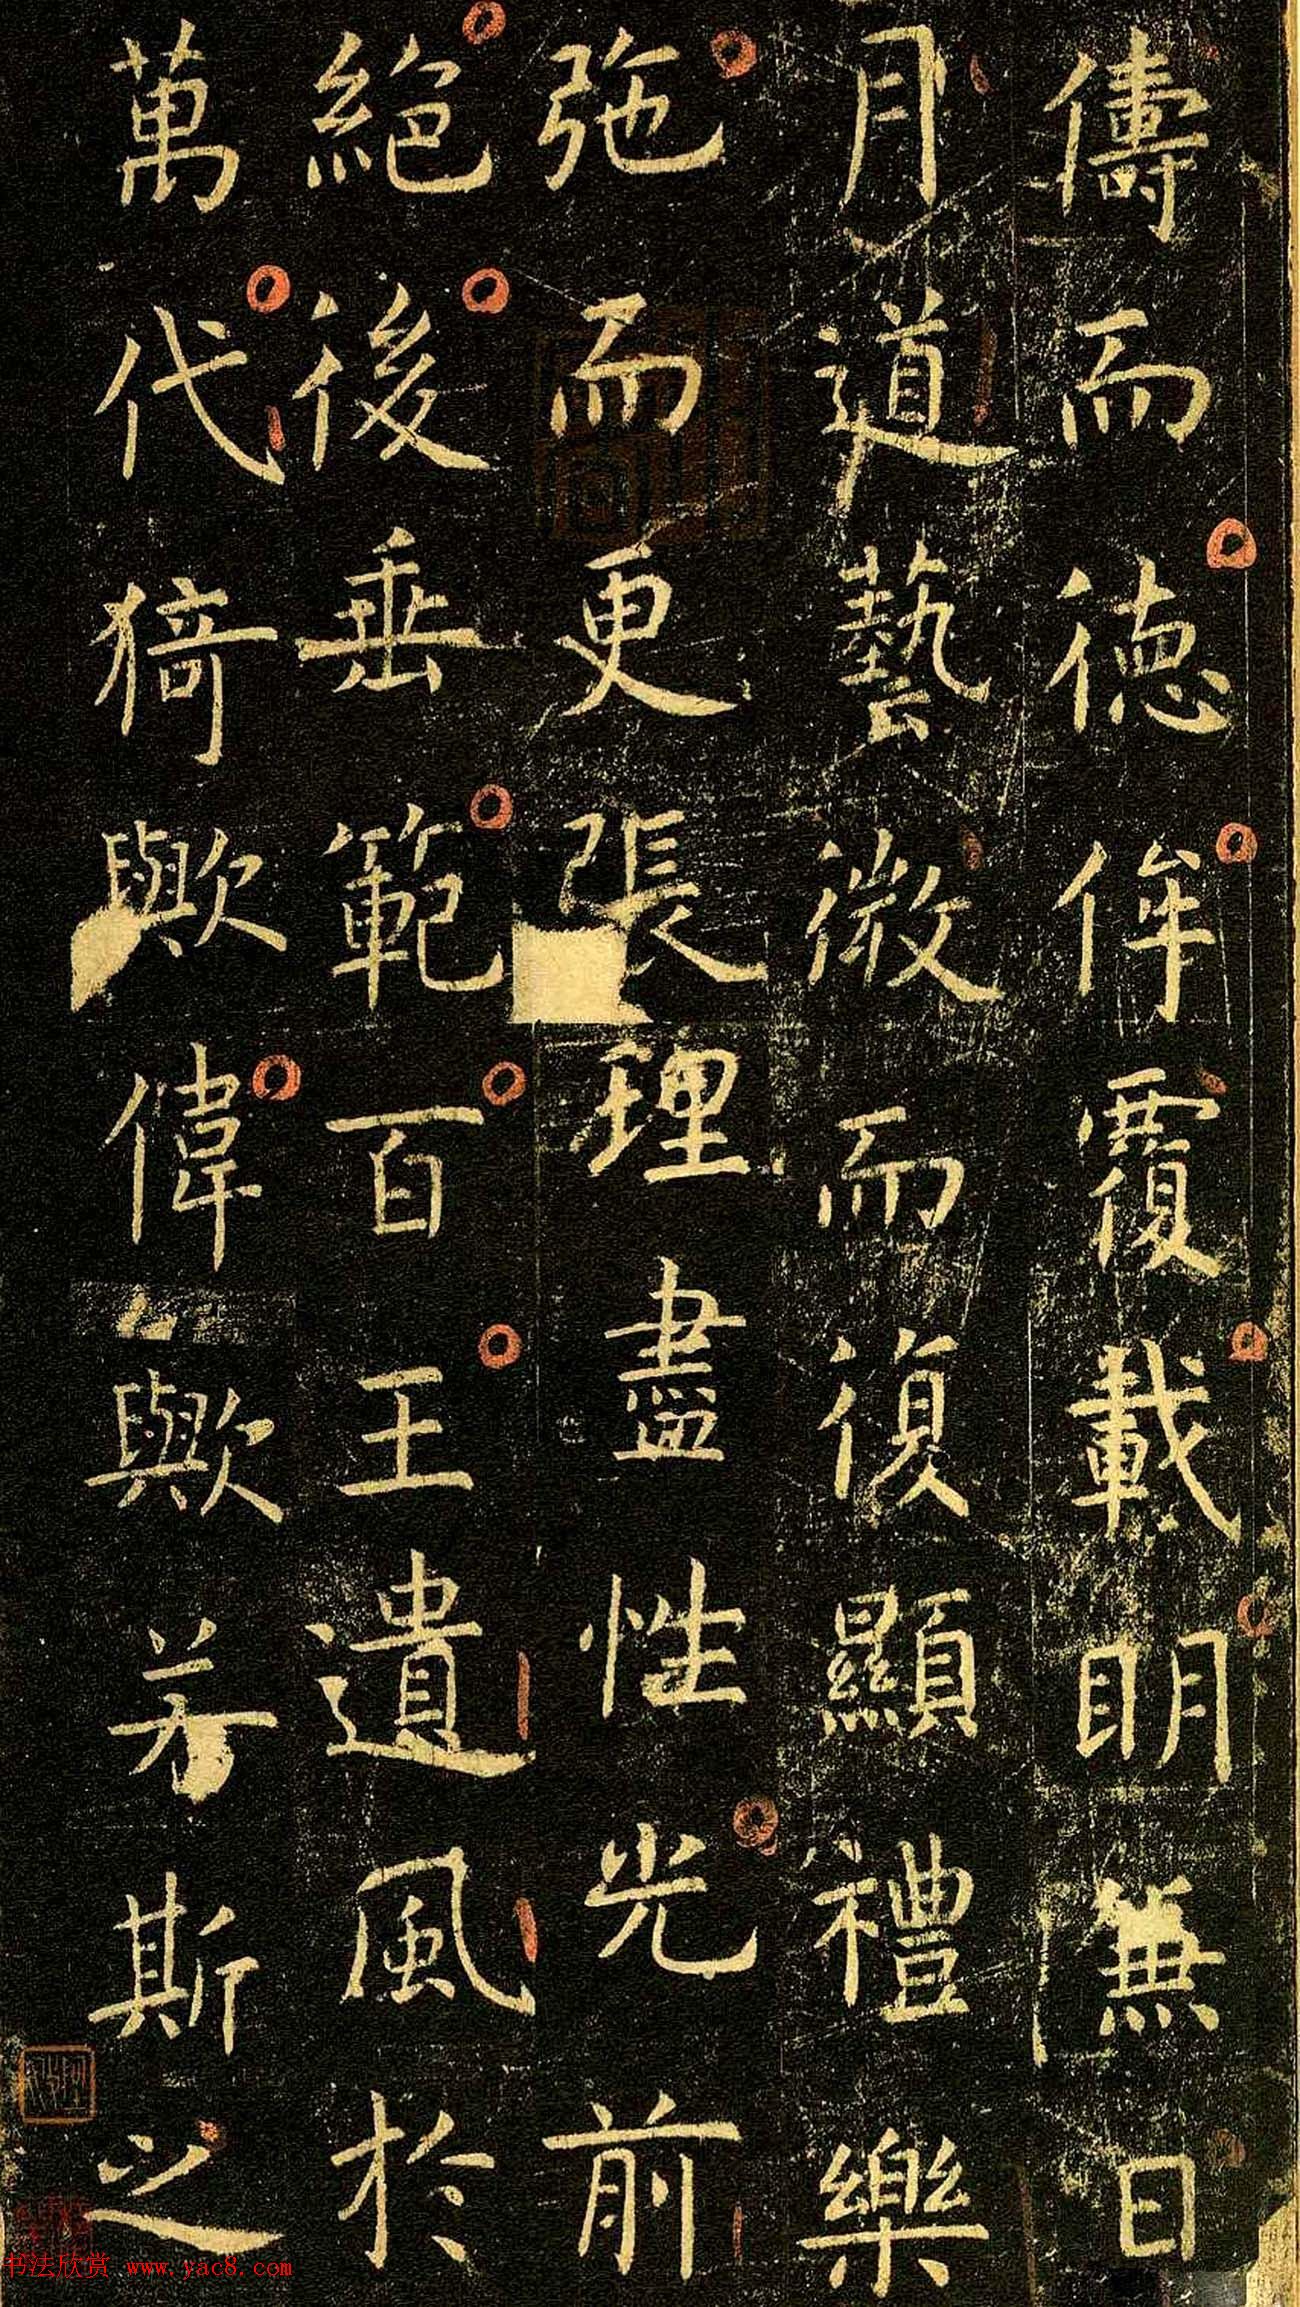 儔而德侔覆載明兼日
月道藝微而復顯禮樂
弛而更張理盡性光前
絕後垂範百王遺風於
萬代猗歟偉歟若斯之
书法欣赏 www.yac8.com